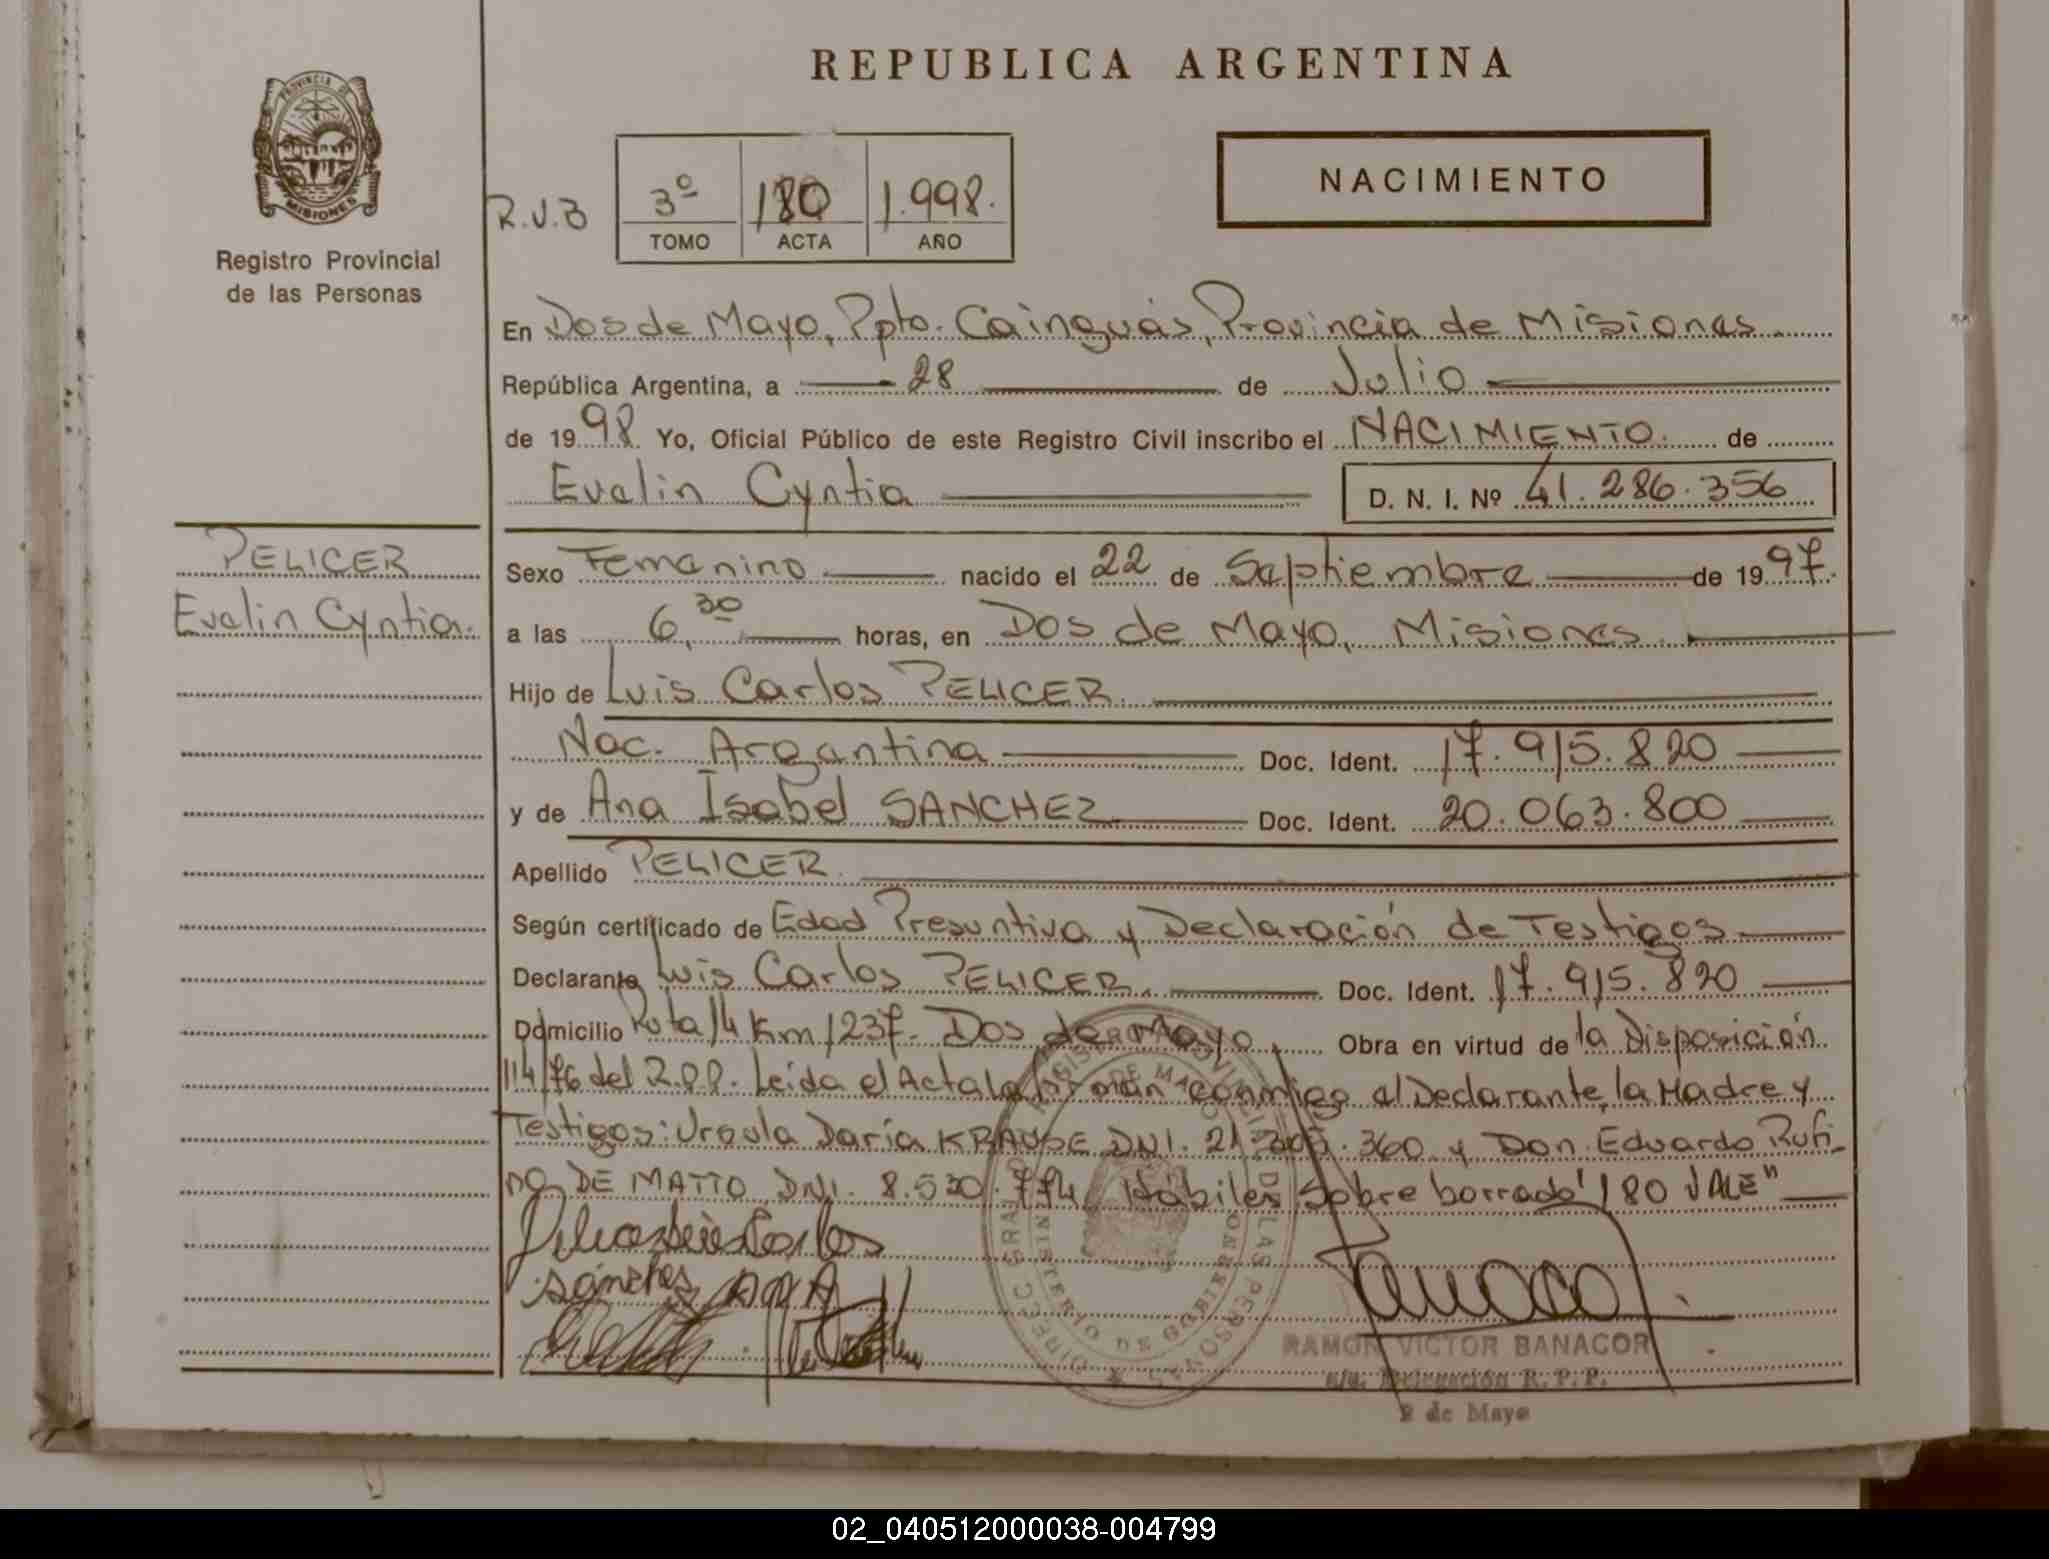 REPUBLICA ARGENTINA
PROVINCIA DE
MISIONES
Registro Provincial
de las Personas
R.V.B
3º 180 1.998.
TOMO ACTA AÑO
NACIMIENTO
En Dos de Mayo, Dpto. Cainguás, Provincia de Misiones
República Argentina, a 28 de Julio
de 1998. Yo, Oficial Público de este Registro Civil inscribo el NACIMIENTO. de
Evelin Cyntia D. N. I. Nº 41.286.356
PELICER
Evelin Cyntia.
Sexo Femenino nacido el 22 de Septiembre de 1997.
a las 6,30 horas, en Dos de Mayo, Misiones.
Hijo de Luis Carlos PELICER.
Nac. Argentina Doc. Ident. 17.915.820
y de Ana Isabel SANCHEZ Doc. Ident. 20.063.800
Apellido PELICER.
Según certificado de Edad Presuntiva y Declaración de Testigos
Declarante Luis Carlos PELICER. Doc. Ident. 17.915.820
Domicilio Ruta 14 Km 1237. Dos de Mayo, Obra en virtud de la Disposición
114/76 del R.P.P. Leída el Acta la firman conmigo el Declarante, la Madre y
Testigos: Ursula Daria KRAUSE DNI. 21.305.360 y Don Eduardo Rufi-
no DE MATTO DNI. 8.530.774 Hábiles Sobre borrado "180 VALE"
Pelicer Luis Carlos
sanches ana
RAMON VICTOR BANACOR
a/c. Delegación R.P.P.
2 de Mayo
02_040512000038-004799